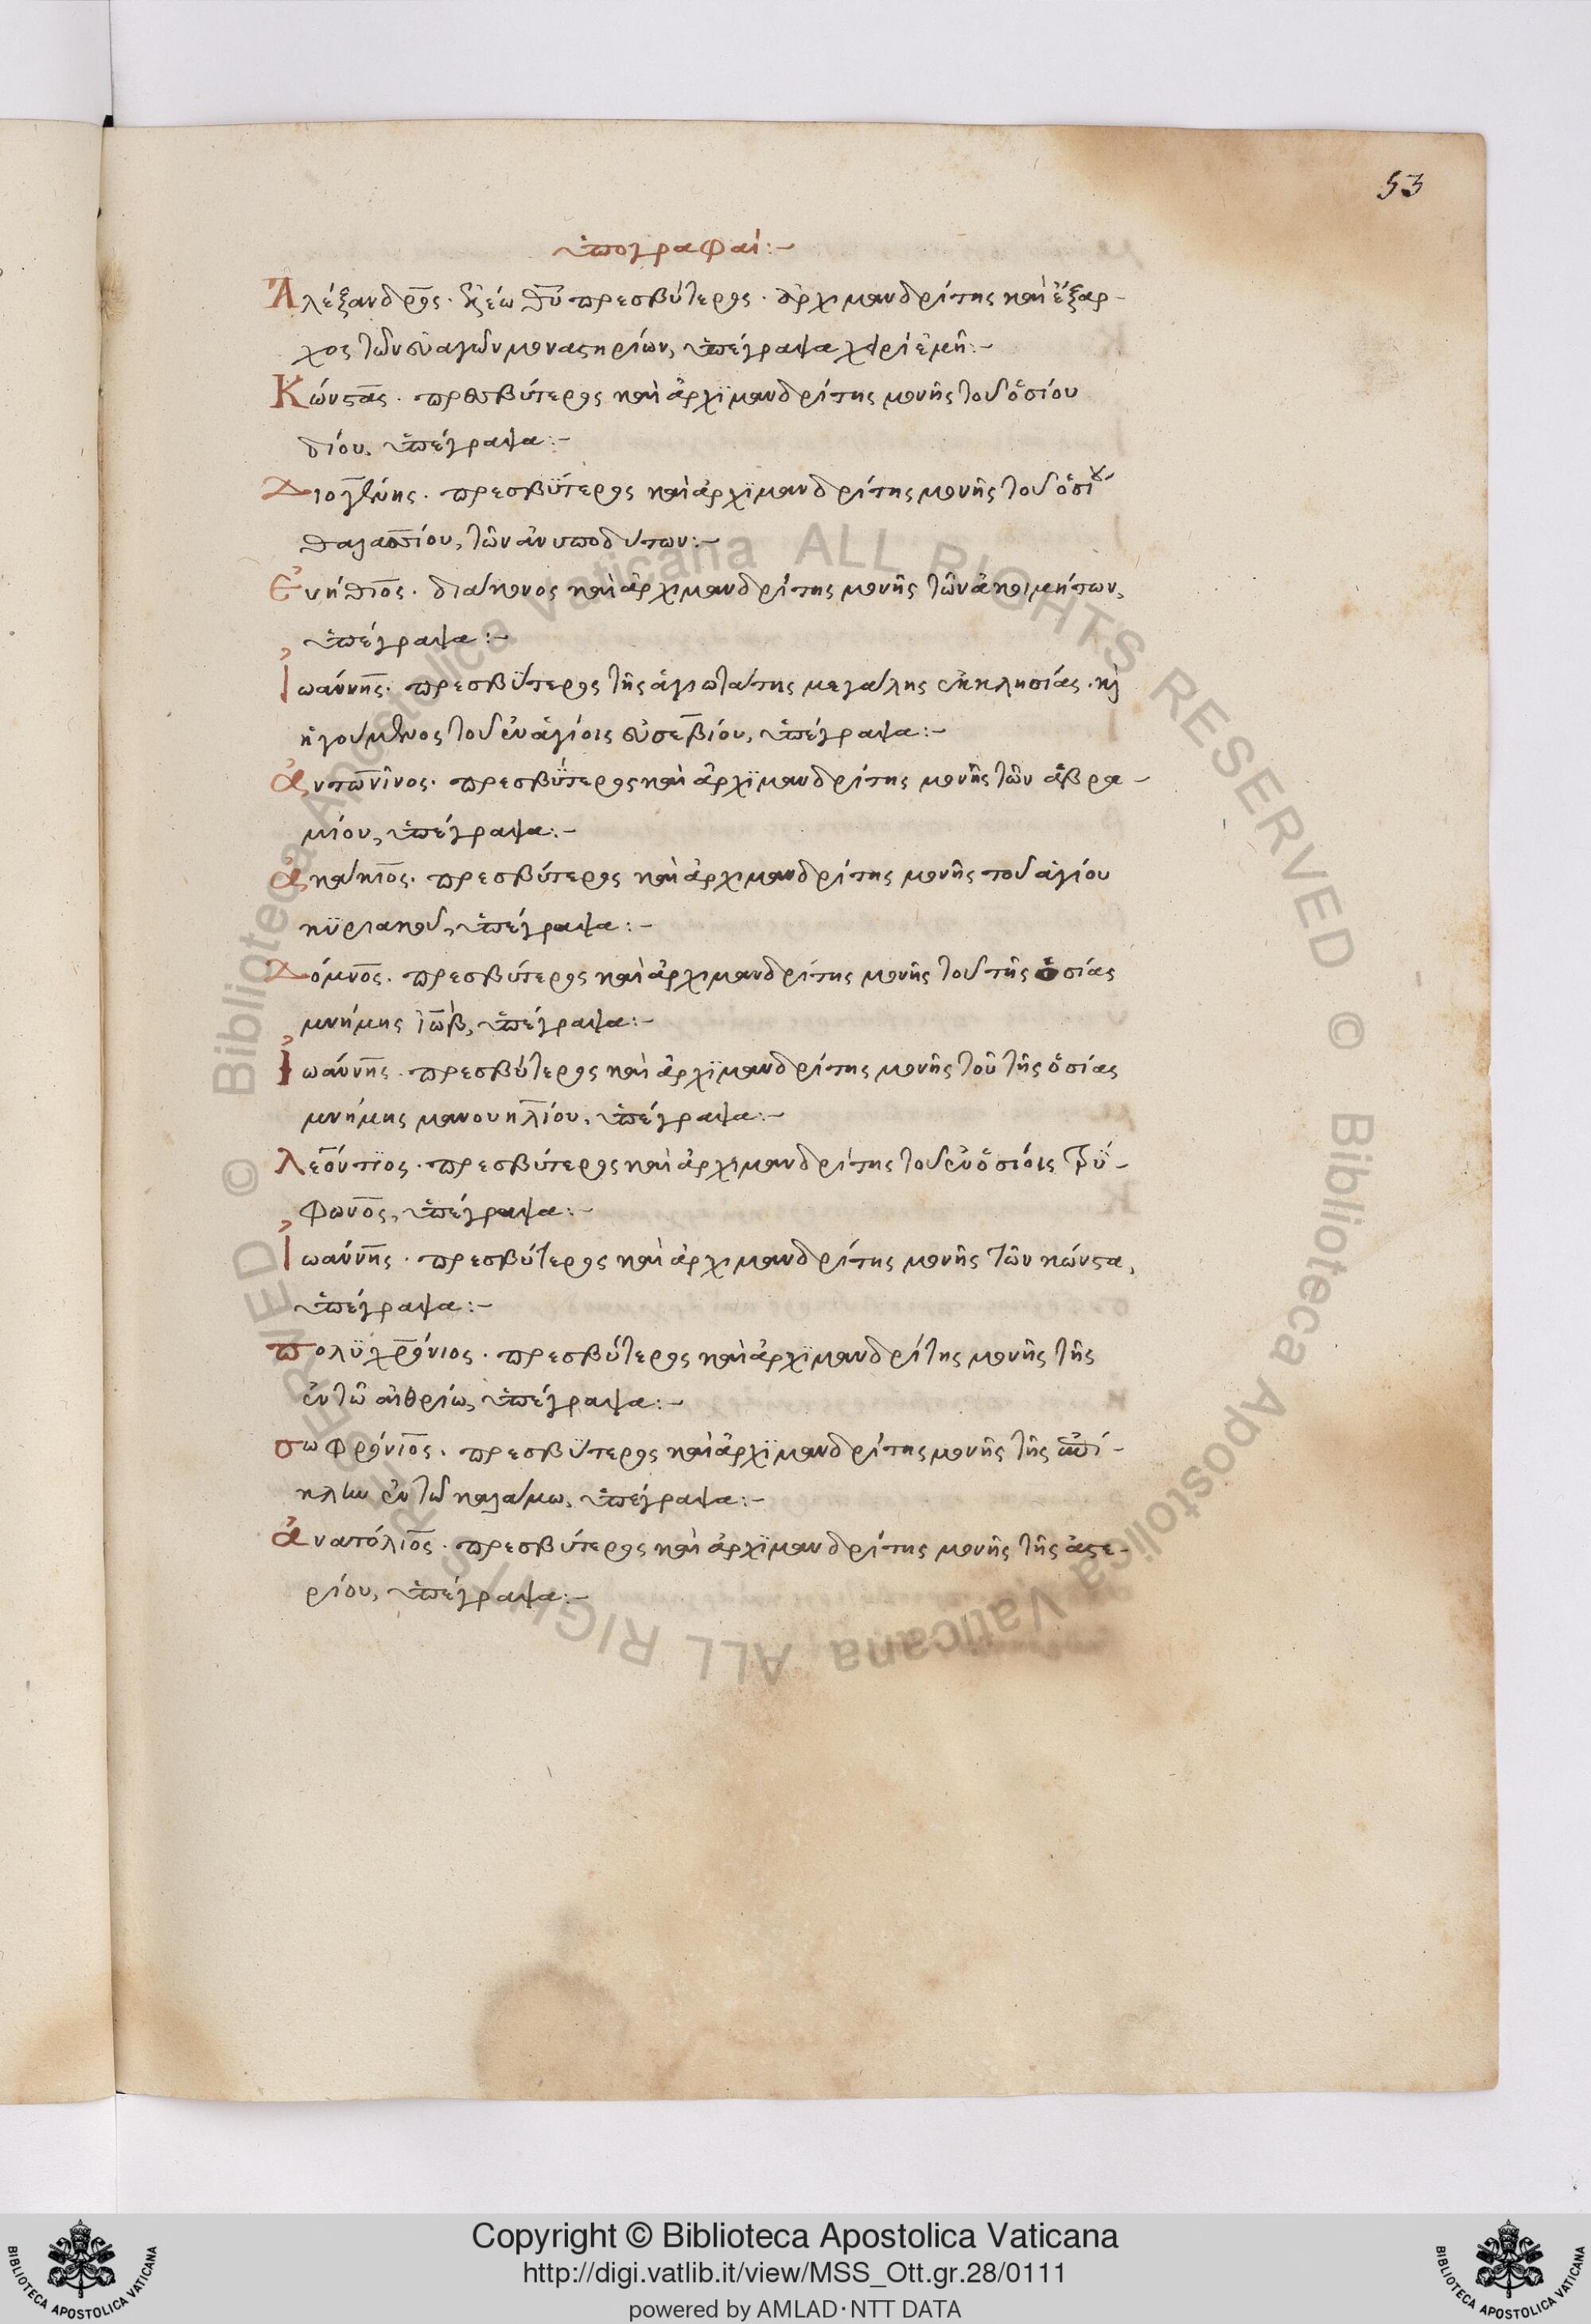 53
ὑπογραφαί:-
Ἀλέξανδρος· ἐλέω θῦ πρεσβύτερος· ἀρχιμανδρίτης καὶ ἔξαρ-
χος τῶν εὐαγῶν μοναστηρίων, ὑπέγραψα χειρὶ ἐμῆ:-
Κώνστας· πρεσβύτερος καὶ ἀρχϊμανδρίτης μονῆς τοῦ ὁσίου
δίου, ὑπέγραψα:-
Διογένης· πρεσβϋτερος καὶ ἀρχϊμανδρίτης μονῆς τοῦ ὁσίου
θαλασσίου, τῶν ἀνυποδύτων:-
Εὐήθιος· διάκονος καὶ ἀρχιμανδρίτης μονῆς τῶν ἀκοιμήτων,
ὑπέγραψα:-
Ἰωάννης· πρεσβϋτερος τῆς ἁγιωτάτης μεγάλης ἐκκλησίας· καὶ
ἡγούμενος τοῦ ἐν ἁγίοις εὐσεβίου, ὑπέγραψα:-
ἀντωνῖνος· πρεσβϋτερος καὶ ἀρχϊμανδρίτης μονῆς τῶν ἀβρα-
μίου, ὑπέγραψα:-
ἀκάκιος· πρεσβύτερος καὶ ἀρχιμανδρίτης μονῆς τοῦ ἁγίου
κϋριακοῦ, ὑπέγραψα:-
Δόμνος· πρεσβύτερος καὶ ἀρχιμανδρίτης μονῆς τοῦ τῆς ὁσίας
μνήμης ἰὼβ, ὑπέγραψα:-
Ἰωάννης· πρεσβύτερος καὶ ἀρχϊμανδρίτης μονῆς τοῦ τῆς ὁσίας
μνήμης μανουηλίου, ὑπέγραψα:-
λεόντϊος· πρεσβύτερος καὶ ἀρχιμανδρίτης τοῦ ἐν ὁσίοις τρϋ-
φωνος, ὑπέγραψα:-
Ἰωάννης· πρεσβύτερος καὶ ἀρχιμανδρίτης μονῆς τῶν κώνστα,
ὑπέγραψα:-
πολϋχρόνιος· πρεσβύτερος καὶ ἀρχϊμανδρίτης μονῆς τῆς
ἐν τῶ αἰθρίω, ὑπέγραψα:-
σωφρόνιος· πρεσβϋτερος καὶ ἀρχϊμανδρίτης μονῆς τῆς ἐπί-
κλην ἐν τῶ καλάμω, ὑπέγραψα:-
ἀνατόλιος· πρεσβύτερος καὶ ἀρχϊμανδρίτης μονῆς τῆς ἀστε-
ρίου, ὑπέγραψα:-
© Biblioteca Apostolica Vaticana ALL RIGHTS RESERVED © Biblioteca Apostolica Vaticana ALL RIGHTS RESERVED
BIBLIOTECA APOSTOLICA VATICANA
Copyright © Biblioteca Apostolica Vaticana
http://digi.vatlib.it/view/MSS_Ott.gr.28/0111
powered by AMLAD·NTT DATA
BIBLIOTECA APOSTOLICA VATICANA